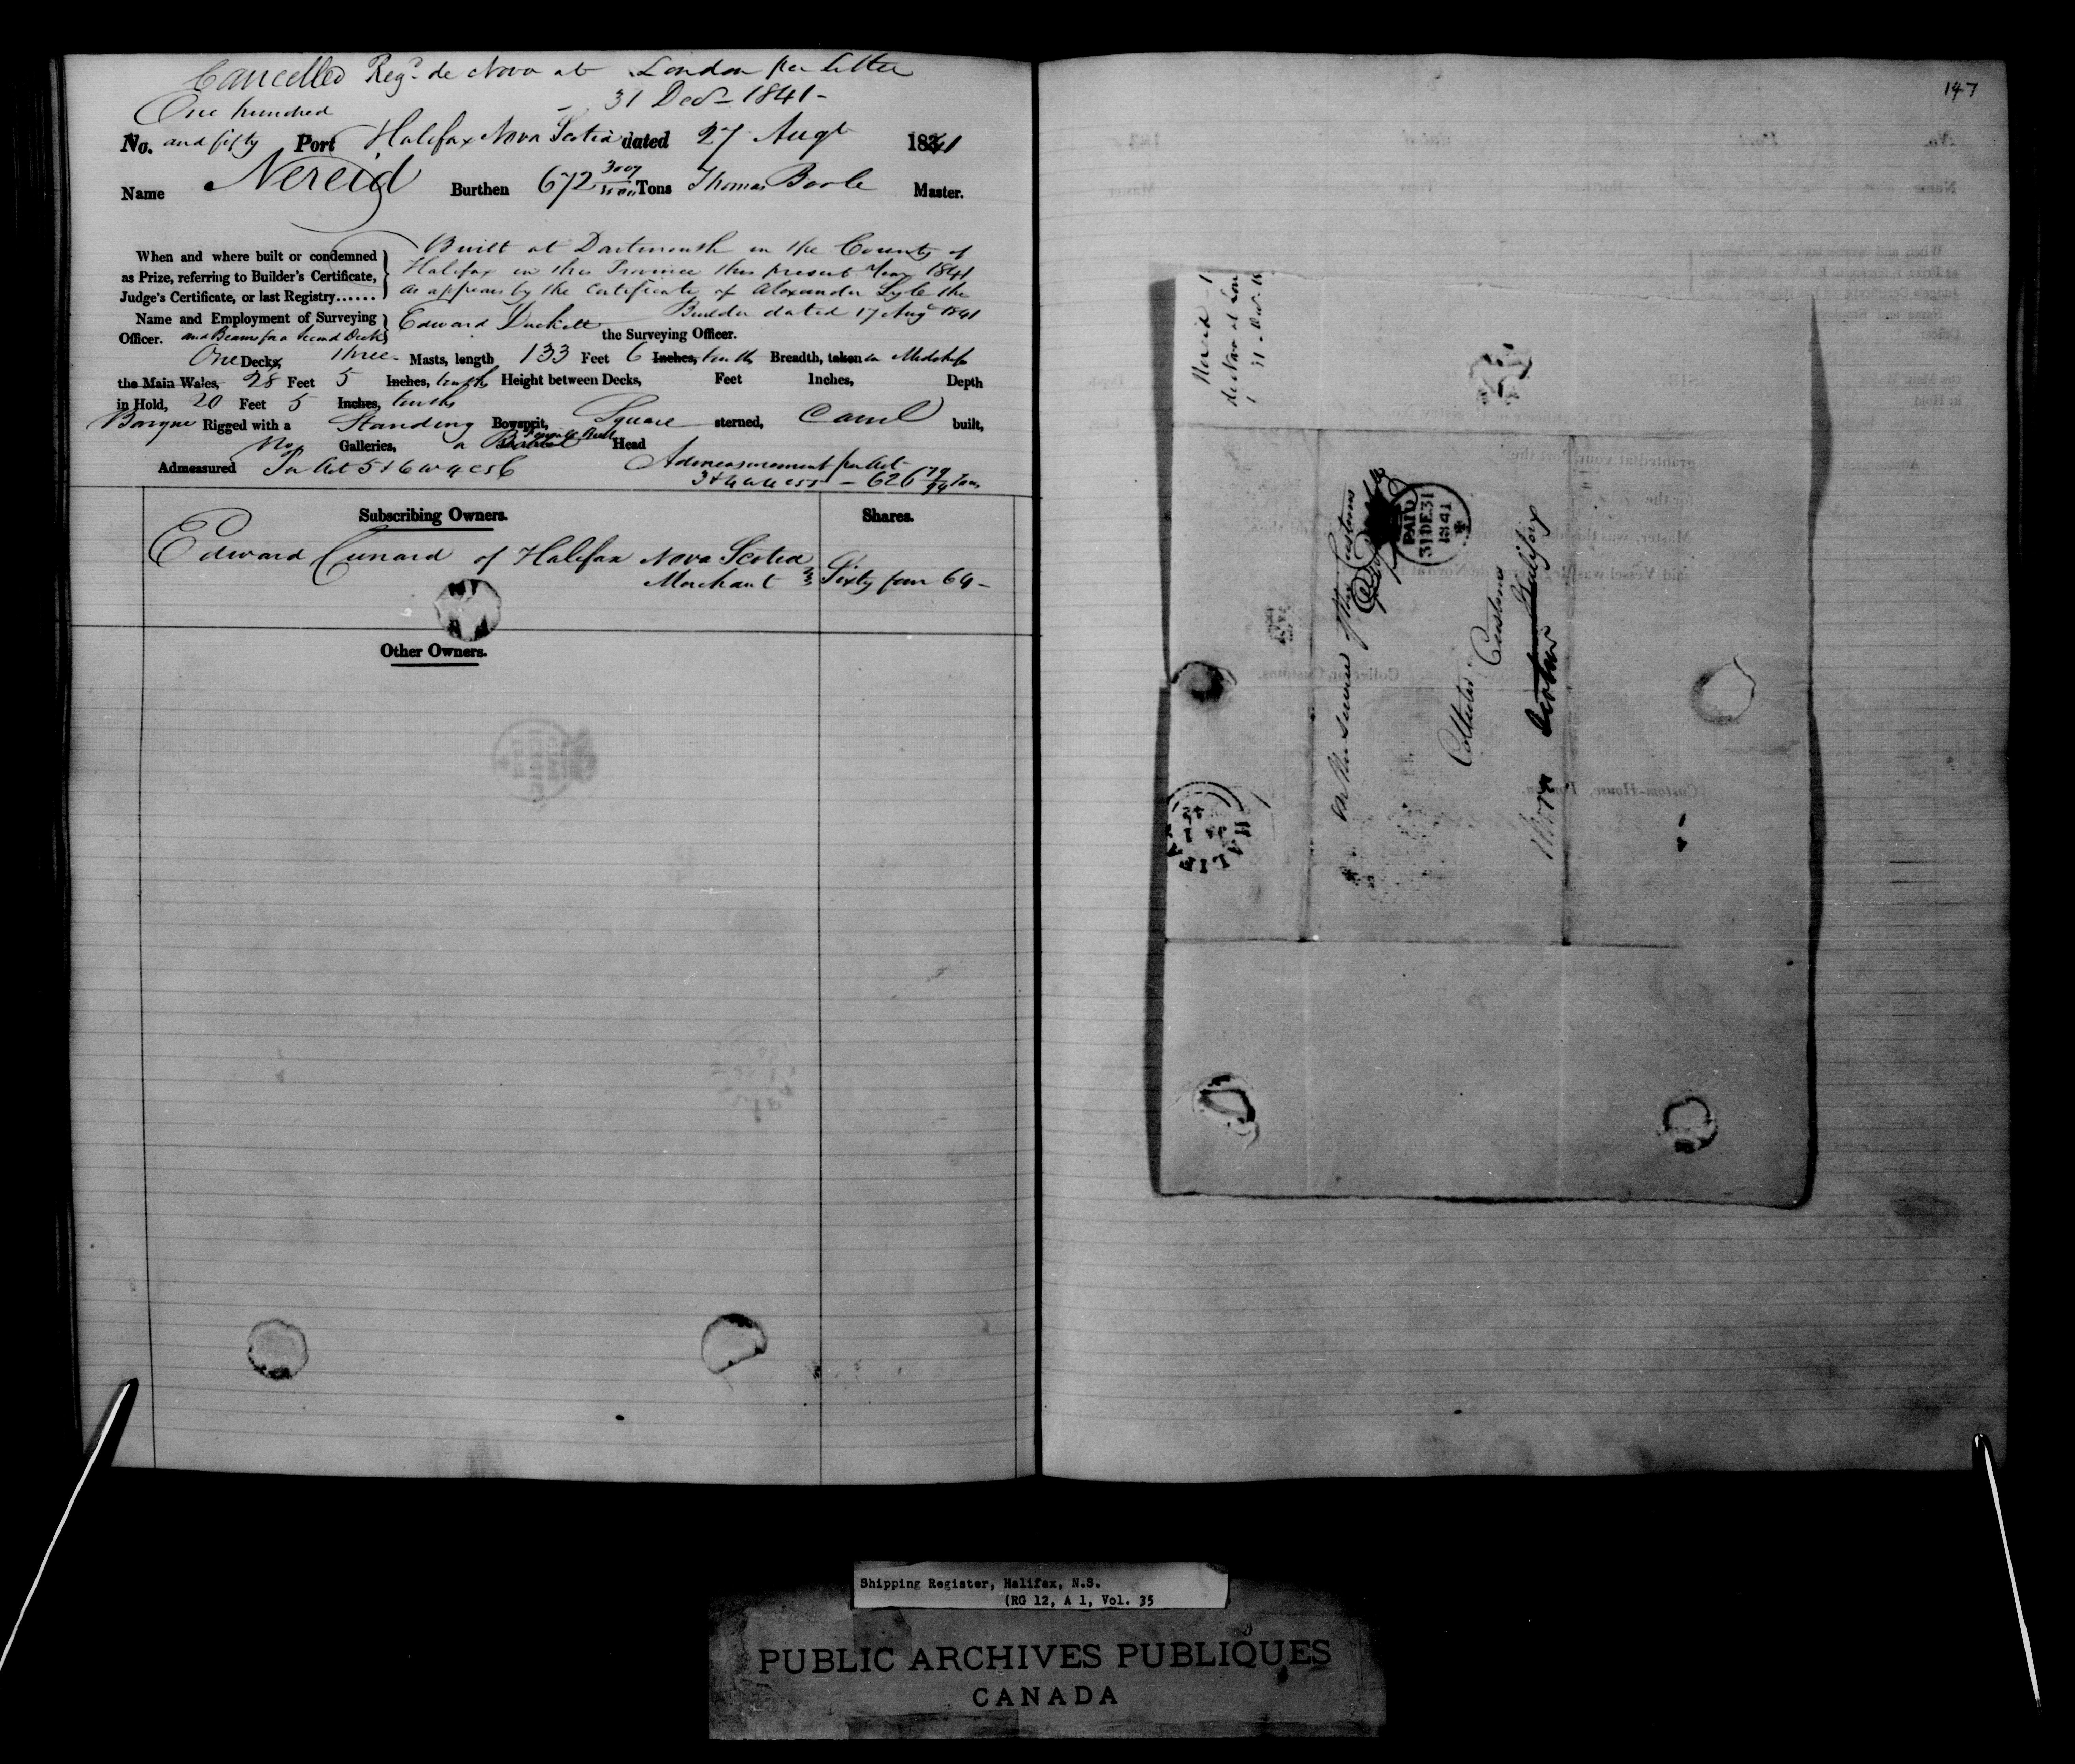 Cancelled Regd. de Novo at London per letter
31 Decr 1841 -
One hundred
No. and fifty Port Halifax Nova Scotia dated 27 Augt 1841
Name Nereid Burthen 672 3007/3500 Tons Thomas Boole Master.
When and where built or condemned as Prize, referring to Builder's Certificate, Judge's Certificate, or last Registry......
Built at Dartmouth in the County of
Halifax in this Province this present Year 1841
as appears by the Certificate of Alexander Lyle the
Builder dated 17 Augt 1841
Name and Employment of Surveying Officer.
Edward Duckett the Surveying Officer.
and Beams for a Second Deck
One Decks, Three Masts, length 133 Feet 6 Inches, tenths Breadth, taken in Midships
the Main Wales, 28 Feet 5 Inches, tenths Height between Decks, Feet Inches, Depth
in Hold, 20 Feet 5 Inches, tenths
Barque Rigged with a Standing Bowsprit, Square sterned, Carvel built,
No Galleries, a Bust Head
Admeasured Per Act 5 & 6 W 4 c 56
Admeasurement per Act
3 & 4 W 4 c 55 - 626 79/94 Tons
Subscribing Owners. Shares.
Edward Cunard of Halifax Nova Scotia
Merchant Sixty four 64 -
Other Owners.
147
Nereid
de Novo at Lon
31 Decr. 18
On Her Service
Customs
PAID
31 DE 31
1841
Collector
Customs
Halifax
Nova Scotia
HALIFA
Shipping Register, Halifax, N.S.
(RG 12, A 1, Vol. 35
PUBLIC ARCHIVES PUBLIQUES
CANADA